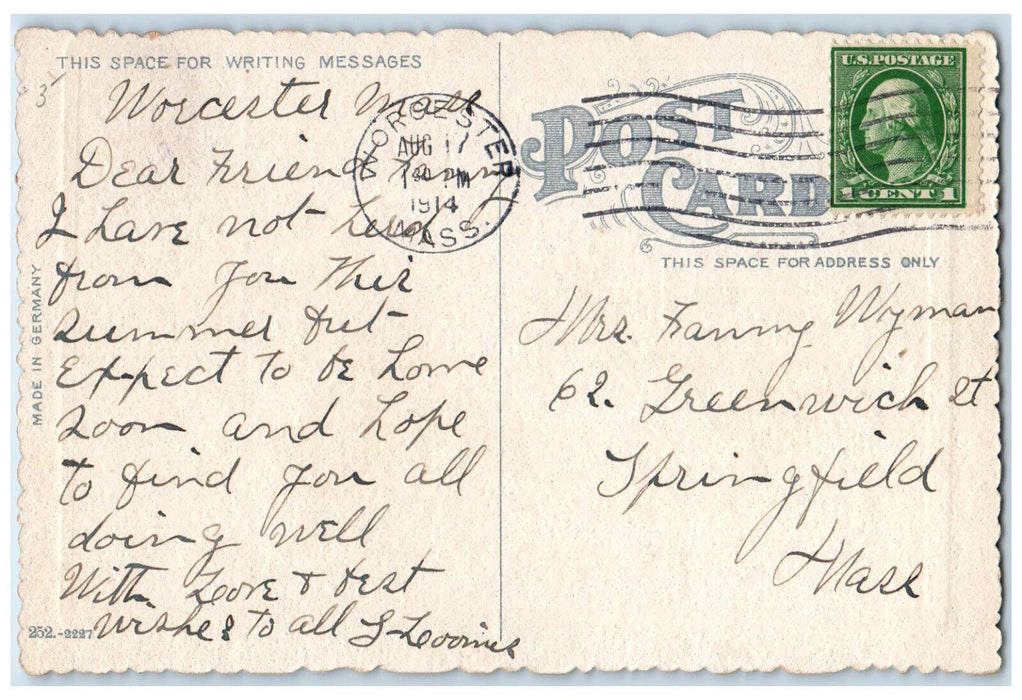 THIS SPACE FOR WRITING MESSAGES
Worcester Mass
Dear Friend Fanny
I have not herd
from you this
summer but
Expect to be home
soon and hope
to find you all
doing well
With Love & best
wishes to all S Loomis
MADE IN GERMANY
252.-2227
WORCESTER
AUG 17
1 PM
1914
MASS.
POST
CARD
U.S. POSTAGE
1 CENT 1
THIS SPACE FOR ADDRESS ONLY
Mrs. Fanny Wyman
62. Greenwich St
Springfield
Mass